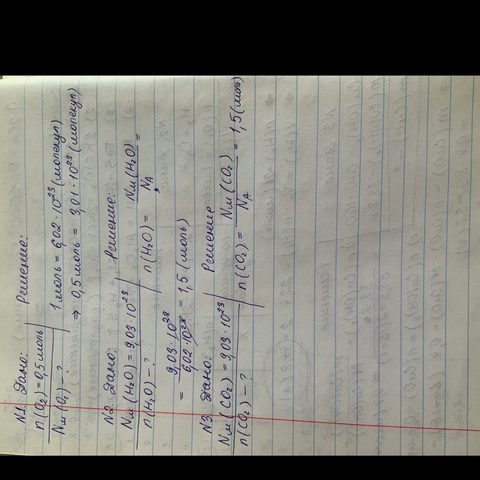 N1 Дано: Решение:
n(O₂) = 0,5 моль 1 моль = 6,02 · 10²³ (молекул)
Nм(O₂) - ? ⇒ 0,5 моль = 3,01 · 10²³ (молекул)
N2 Дано: Решение:
Nм(H₂O) = 9,03 · 10²³ n(H₂O) = Nм(H₂O) / Nₐ =
n(H₂O) - ?
= 9,03 · 10²³ / 6,02 · 10²³ = 1,5 (моль)
N3 Дано: Решение
Nм(CO₂) = 9,03 · 10²³ n(CO₂) = Nм(CO₂) / Nₐ = 1,5 (моль)
n(CO₂) - ?